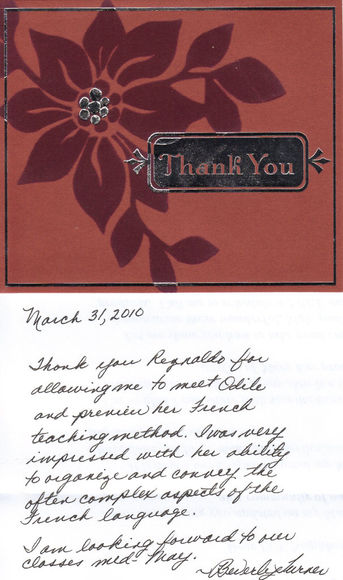 Thank You
March 31, 2010
Thank you Reynaldo for
allowing me to meet Odile
and preview her French
teaching method. I was very
impressed with her ability
to organize and convey the
often complex aspects of the
French language.
I am looking forward to our
classes mid-May.
Beverly Turner